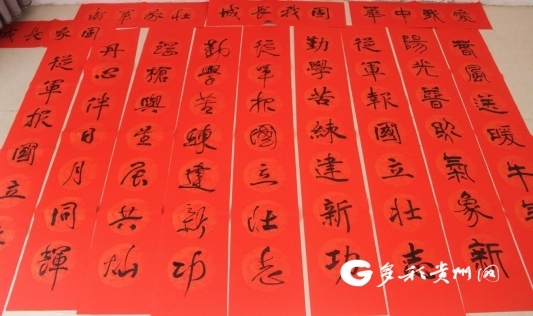 愛我中華
固我長城
春風送暖牛年
陽光普照氣象新
從軍報國立壯志
勤學苦練建新功
從軍報國立壯志
勤學苦練建新功
槍與星辰共灿
丹心伴日月同輝
從軍报國立
多彩贵州网